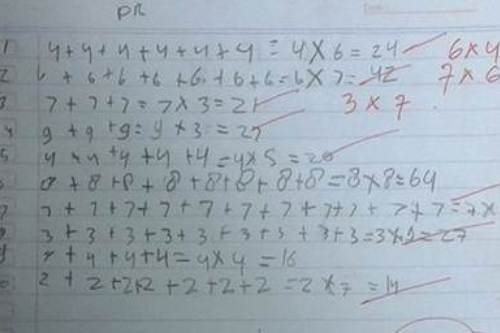 PR
1 4+4+4+4+4+4 = 4×6 = 24 6×4
2 6+6+6+6+6+6+6=6×7=42 7×6
3 7+7+7=7×3=21 3×7
4 9+9+9=9×3=27
5 4+4+4+4+4=4×5=20
8+8+8+8+8+8+8+8=8×8=64
7+7+7+7+7+7+7+7+7+7=7×
3+3+3+3+3+3+3+3+3=3×9=27
4+4+4+4=4×4=16
2+2+2+2+2+2+2=2×7=14